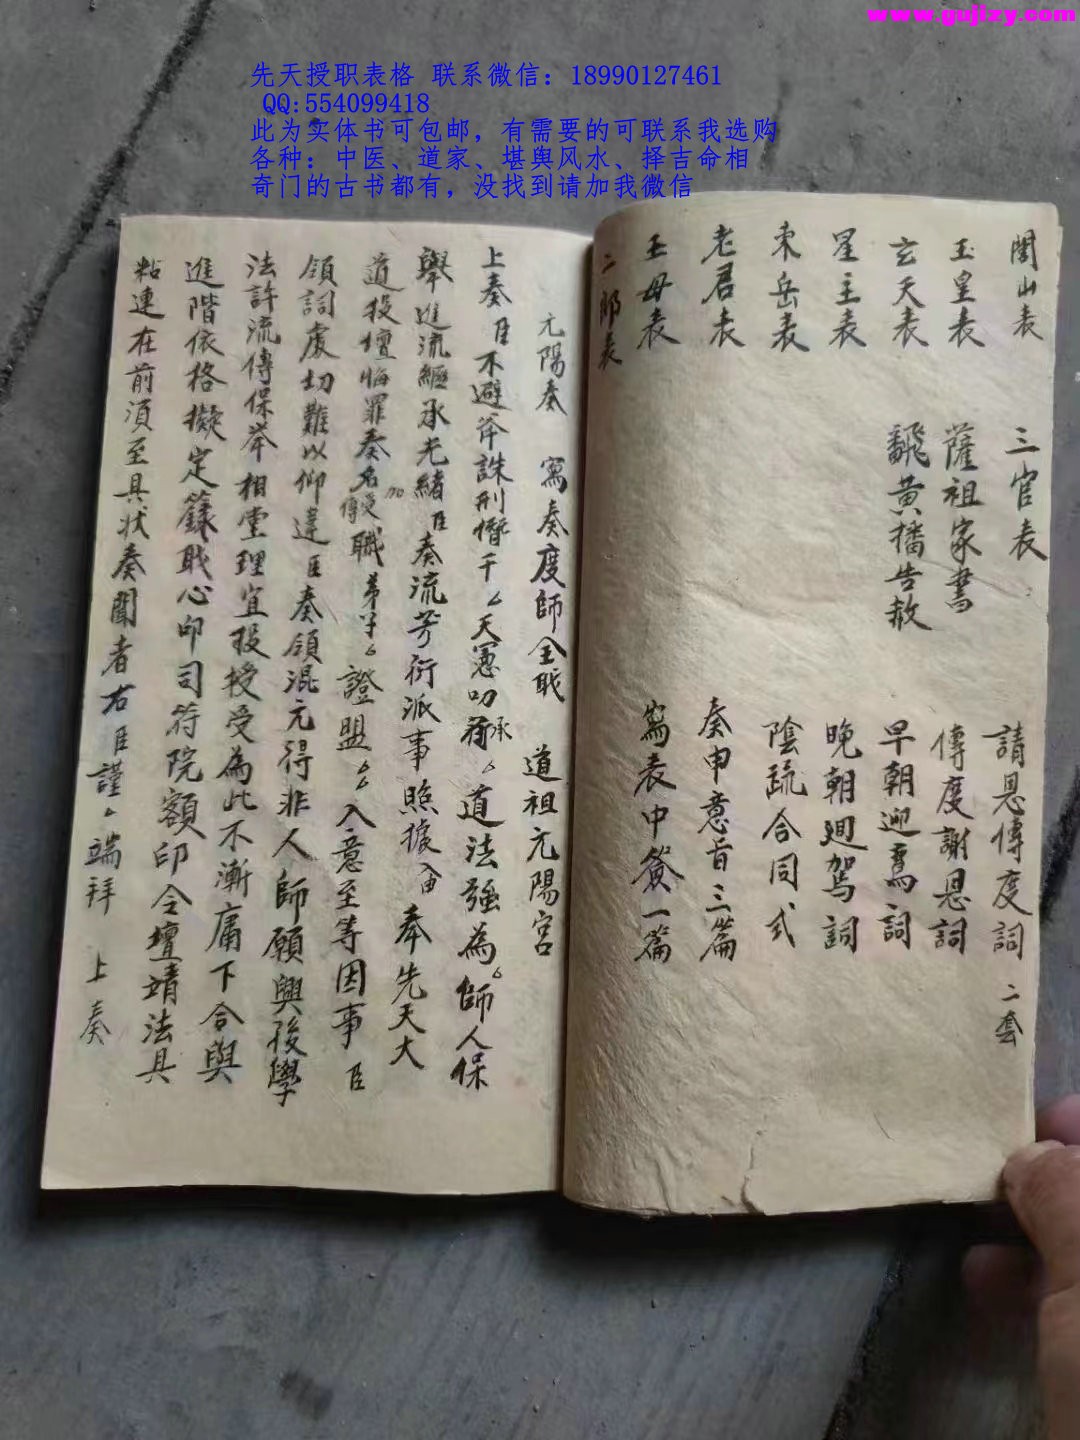 www.gujizy.com
先天授职表格 联系微信：18990127461
QQ:554099418
此为实体书可包邮，有需要的可联系我选购
各种：中医、道家、堪舆风水、择吉命相
奇门的古书都有，没找到请加我微信
閭山表 三官表 請恩傳度詞 二套
玉皇表 薩祖家書 傳度謝恩詞
玄天表 飜黃播告赦 早朝迎鸞詞
星主表 晚朝廻駕詞
東岳表 陰疏合同式
老君表 奏申意旨三篇
王母表 寫表中簽一篇
二郎表
元陽奏 寫奏度師全职 道祖元陽宮
上奏臣不避斧誅刑憯千 天憲叨承 道法強為 師人保
舉進流纏承光緒臣奏流芳衍派事照據 奉先天大
道投壇悔罪奏名傳受職弟子 證盟 入意至等因事臣
領詞虔切難以仰違臣奏領混元得非人師願與後學
法許流傳保举相堂理宜授受為此不漸庸下合與
進階依格擬定籙职心印司符院額印令壇靖法具
粘連在前須至具狀奏聞者右臣謹 端拜 上奏